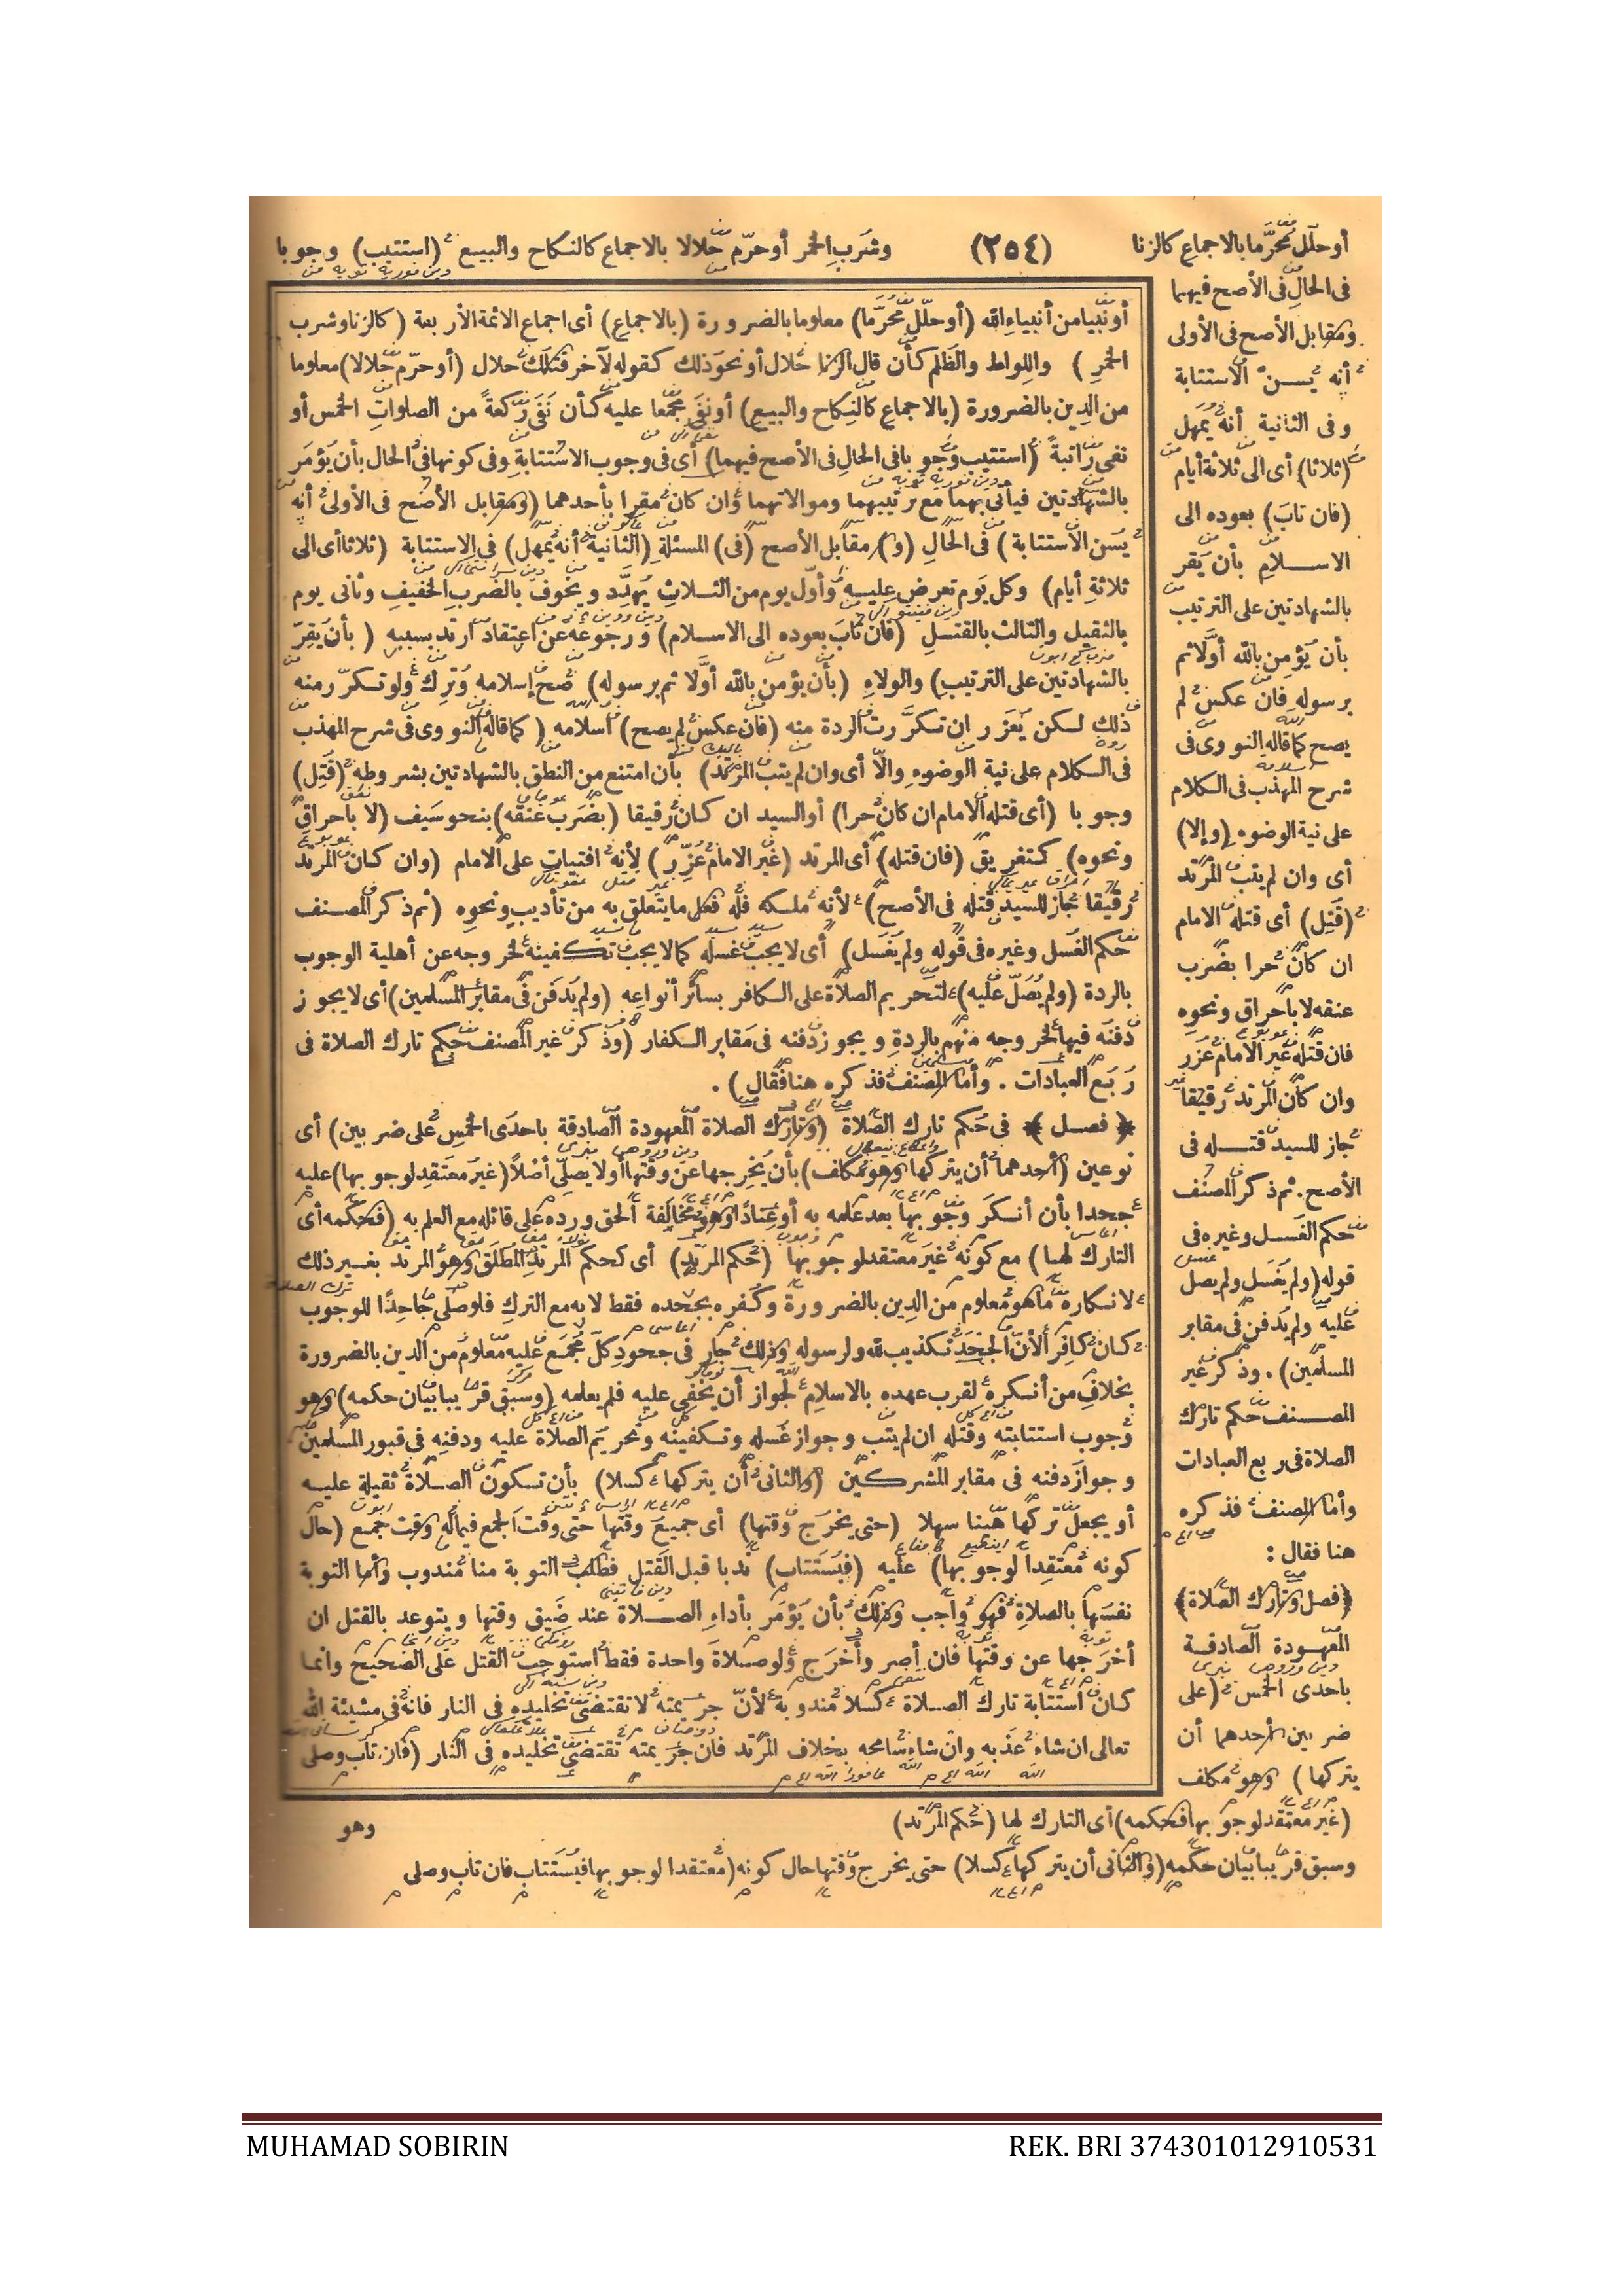 أو حلّل محرّما بالاجماع كالزنا (٢٥٤) وشرب الخمر أو حرّم حلالا بالاجماع كالنكاح والبيع (استتيب) وجوبا
فى الحال فى الأصح فيهما
ومقابل الأصح فى الأولى
أنه يسن الاستتابة
وفى الثانية أنه يمهل
(ثلاثا) أى الى ثلاثة أيام
(فان تاب) بعوده الى
الاسلام بأن يقر
بالشهادتين على الترتيب
بأن يؤمن بالله أولا ثم
برسوله فان عكس لم
يصح كما قاله النووى فى
شرح المهذب فى الكلام
على نية الوضوء (والا)
أى وان لم يتب المرتد
(قتل) أى قتله الامام
ان كان حرا بضرب
عنقه لا باحراق ونحوه
فان قتله غير الامام عزر
وان كان المرتد رقيقا
جاز للسيد قتله فى
الأصح. ثم ذكر المصنف
حكم الغسل وغيره فى
قوله (ولم يغسل ولم يصل
عليه ولم يدفن فى مقابر
المسلمين). وذكر غير
المصنف حكم تارك
الصلاة فى ربع العبادات
وأما المصنف فذكره
هنا فقال :
﴿فصل وتارك الصلاة﴾
المعهودة الصادقة
باحدى الخمس (على
ضربين أحدهما أن
يتركها) وهو مكلف
(غير معتقد لوجوبها فحكمه) أى التارك لها (حكم المرتد)
وسبق قريبا بيان حكمه (والثانى أن يتركها كسلا) حتى يخرج وقتها حال كونه (معتقدا لوجوبها فيستتاب فان تاب وصلى
أو نبيا من أنبياء الله (أو حلّل محرّما) معلوما بالضرورة (بالاجماع) أى اجماع الائمة الأربعة (كالزنا وشرب
الخمر) واللواط والظلم كأن قال الزنا حلال أو نحو ذلك كقوله لآخر قتلك حلال (أو حرّم حلالا) معلوما
من الدين بالضرورة (بالاجماع كالنكاح والبيع) أو نفى مجمعا عليه كأن نفى ركعة من الصلوات الخمس أو
نفى راتبة (استتيب وجوبا فى الحال فى الأصح فيهما) أى فى وجوب الاستتابة وفى كونها فى الحال بأن يؤمر
بالشهادتين فيأتى بهما مع ترتيبهما وموالاتهما وان كان مقرا بأحدهما (ومقابل الأصح فى الأولى أنه
يسن الاستتابة) فى الحال (و) مقابل الأصح (فى) المسئلة (الثانية أنه يمهل) فى الاستتابة (ثلاثا أى الى
ثلاثة أيام) وكل يوم تعرض عليه وأول يوم من الثلاث يهدّد ويخوف بالضرب الخفيف وثانى يوم
بالثقيل والثالث بالقتل (فان تاب بعوده الى الاسلام) ورجوعه عن اعتقاد ارتد بسببه (بأن يقرّ
بالشهادتين على الترتيب) والولاء (بأن يؤمن بالله أولا ثم برسوله) صح إسلامه وترك ولو تكرّر منه
ذلك لكن يعزر ان تكررت الردة منه (فان عكس لم يصح) اسلامه (كما قاله النووى فى شرح المهذب
فى الكلام على نية الوضوء والّا أى وان لم يتب المرتد) بأن امتنع من النطق بالشهادتين بشروطه (قتل)
وجوبا (أى قتله الامام ان كان حرا) أو السيد ان كان رقيقا (بضرب عنقه) بنحو سيف (لا باحراق
ونحوه) كتغريق (فان قتله) أى المرتد (غير الامام عزّر) لأنه افتيات على الامام (وان كان المرتد
رقيقا جاز للسيد قتله فى الأصح) لأنه ملكه فله فعل ما يتعلق به من تأديب ونحوه (ثم ذكر المصنف
حكم الغسل وغيره فى قوله ولم يغسل) أى لا يجب غسله كما لا يجب تكفينه لخروجه عن أهلية الوجوب
بالردة (ولم يصلّ عليه) لتحريم الصلاة على الكافر بسائر أنواعه (ولم يدفن فى مقابر المسلمين) أى لا يجوز
دفنه فيها لخروجه منهم بالردة ويجوز دفنه فى مقابر الكفار (وذكر غير المصنف حكم تارك الصلاة فى
ربع العبادات . وأما المصنف فذكره هنا فقال) .
﴿فصل﴾ فى حكم تارك الصلاة (وتارك الصلاة المعهودة الصادقة باحدى الخمس على ضربين) أى
نوعين (أحدهما أن يتركها وهو مكلف) بأن يخرجها عن وقتها أو لا يصلّى أصلا (غير معتقد لوجوبها) عليه
جحدا بأن أنكر وجوبها بعد علمه به أو عنادا وهو مخالفة الحق ورده على قائله مع العلم به (فحكمه أى
التارك لها) مع كونه غير معتقد لوجوبها (حكم المرتد) أى كحكم المرتد المطلق وهو المرتد بغير ذلك
لانكاره ما هو معلوم من الدين بالضرورة وكفره بجحده فقط لا به مع الترك فلو صلى جاحدا للوجوب
كان كافرا لأنّ الجحد تكذيب لله ولرسوله وذلك جار فى جحود كلّ مجمع عليه معلوم من الدين بالضرورة
بخلاف من أنكره لقرب عهده بالاسلام لجواز أن يخفى عليه فلم يعلمه (وسبق قريبا بيان حكمه) وهو
وجوب استتابته وقتله ان لم يتب وجواز غسله وتكفينه وتحريم الصلاة عليه ودفنه فى قبور المسلمين
وجواز دفنه فى مقابر المشركين (والثانى أن يتركها كسلا) بأن تكون الصلاة ثقيلة عليه
أو يجعل تركها هينا سهلا (حتى يخرج وقتها) أى جميع وقتها حتى وقت الجمع فيما له وقت جمع (حال
كونه معتقدا لوجوبها) عليه (فيستتاب) ندبا قبل القتل فطلب التوبة منا مندوب وأما التوبة
نفسها بالصلاة فهو واجب وذلك بأن يؤمر بأداء الصلاة عند ضيق وقتها ويتوعد بالقتل ان
أخرجها عن وقتها فان أصر وأخرج ولو صلاة واحدة فقط استوجب القتل على الصحيح وانما
كان استتابة تارك الصلاة كسلا مندوبة لأنّ جريمته لا تقتضى تخليده فى النار فانه فى مشيئة الله
تعالى ان شاء عذبه وان شاء سامحه بخلاف المرتد فان جريمته تقتضى تخليده فى النار (فان تاب وصلى
وهو
MUHAMAD SOBIRIN REK. BRI 374301012910531